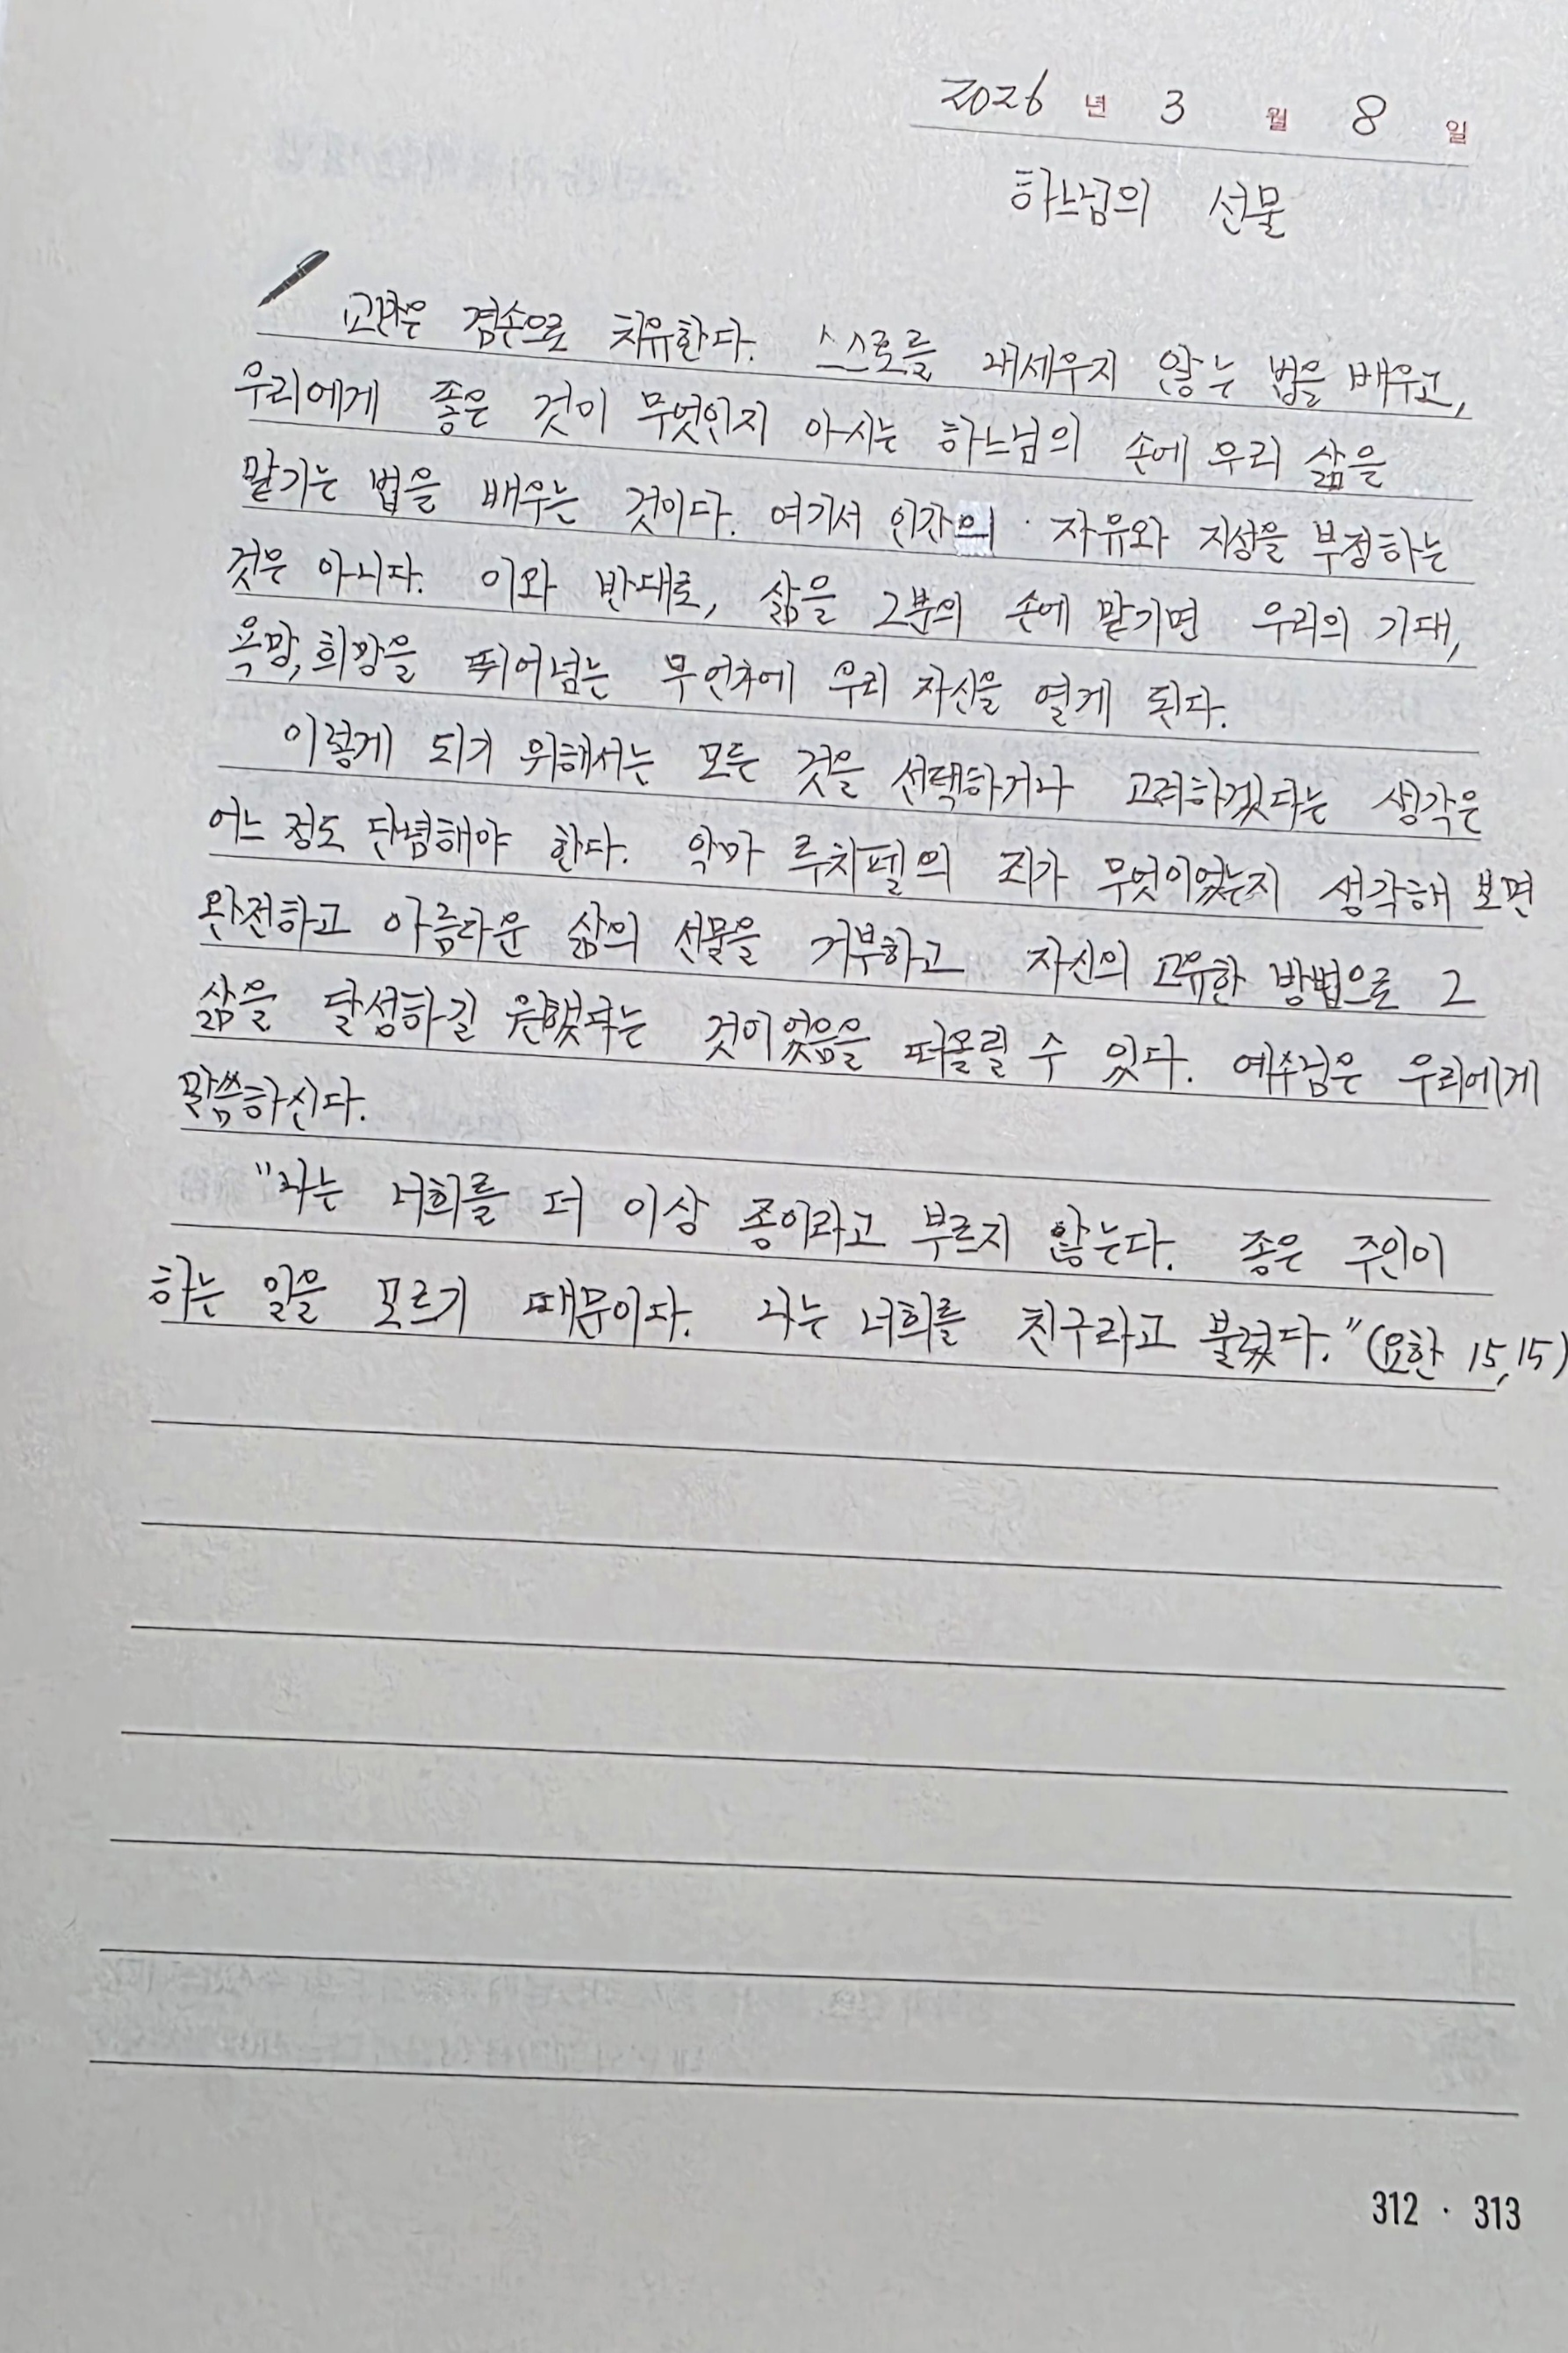 2026 년 3 월 8 일
하느님의 선물
교만은 겸손으로 치유한다. 스스로를 내세우지 않는 법을 배우고,
우리에게 좋은 것이 무엇인지 아시는 하느님의 손에 우리 삶을
맡기는 법을 배우는 것이다. 여기서 인간의 자유와 지성을 부정하는
것은 아니다. 이와 반대로, 삶을 그분의 손에 맡기면 우리의 기대,
욕망, 희망을 뛰어넘는 무언가에 우리 자신을 열게 된다.
이렇게 되기 위해서는 모든 것을 선택하거나 고려하겠다는 생각은
어느 정도 단념해야 한다. 악마 루치펠의 죄가 무엇이었는지 생각해 보면
완전하고 아름다운 삶의 선물을 거부하고 자신의 고유한 방법으로 그
삶을 달성하길 원했다는 것이었음을 떠올릴 수 있다. 예수님은 우리에게
말씀하신다.
"나는 너희를 더 이상 종이라고 부르지 않는다. 종은 주인이
하는 일을 모르기 때문이다. 나는 너희를 친구라고 불렀다." (요한 15,15)
312 · 313